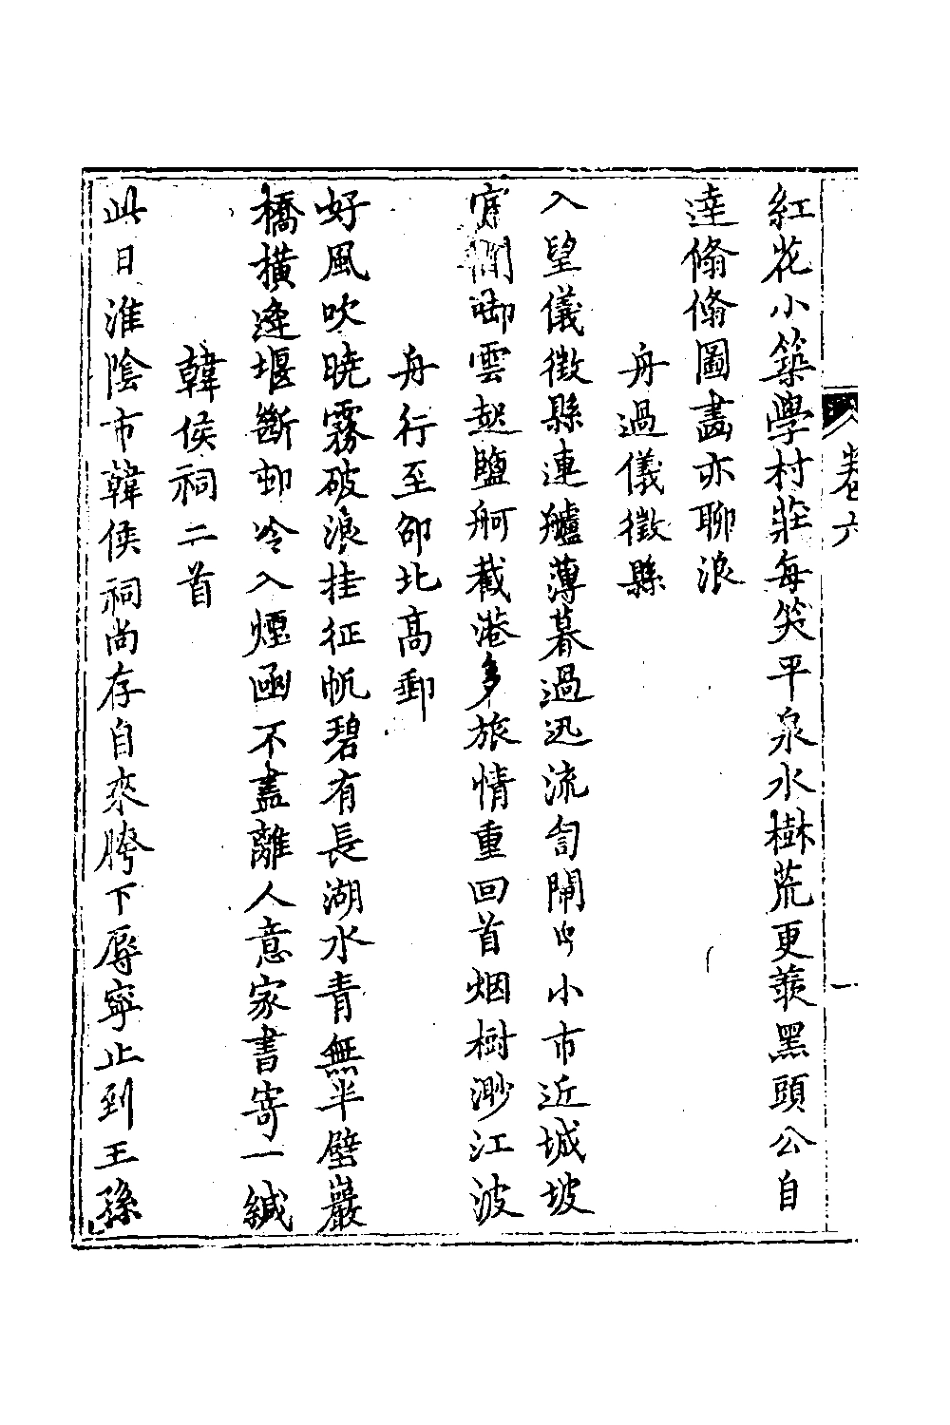 卷六
一
紅花小築學村莊每笑平泉水樹荒更羨黑頭公自
達翛翛圖畫亦聊浪
舟過儀徵縣
入望儀徵縣連艫薄暮過迅流訇閘口小市近城坡
窗間啣雲起鹽舸截港多旅情重回首烟樹渺江波
舟行至邵北高郵
好風吹曉霧破浪挂征帆碧有長湖水青無半壁巖
橋橫逢堰斷邨冷入煙函不盡離人意家書寄一緘
韓侯祠二首
此日淮陰市韓侯祠尚存自來胯下辱寧止到王孫